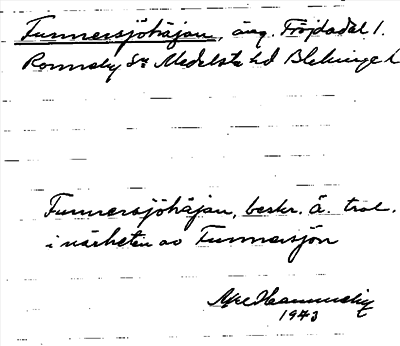 Tunnersjöhäjan, äng. Fröjdadal 1.
Ronneby Sn Medelsta hd Blekinge l
Tunnersjöhäjan, beskr. ä. trol.
i närheten av Tunnersjön
Åke Hammarby
1943